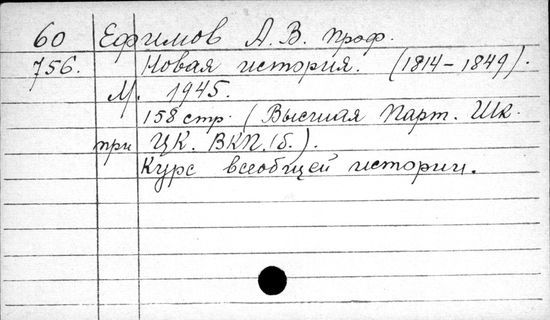 60 Ефимов А. В. проф.
756. Новая история. (1814-1849).
М. 1945.
158 стр. (Высшая Парт. Шк.
при ЦК. ВКП.(б.).
Курс всеобщей истории.